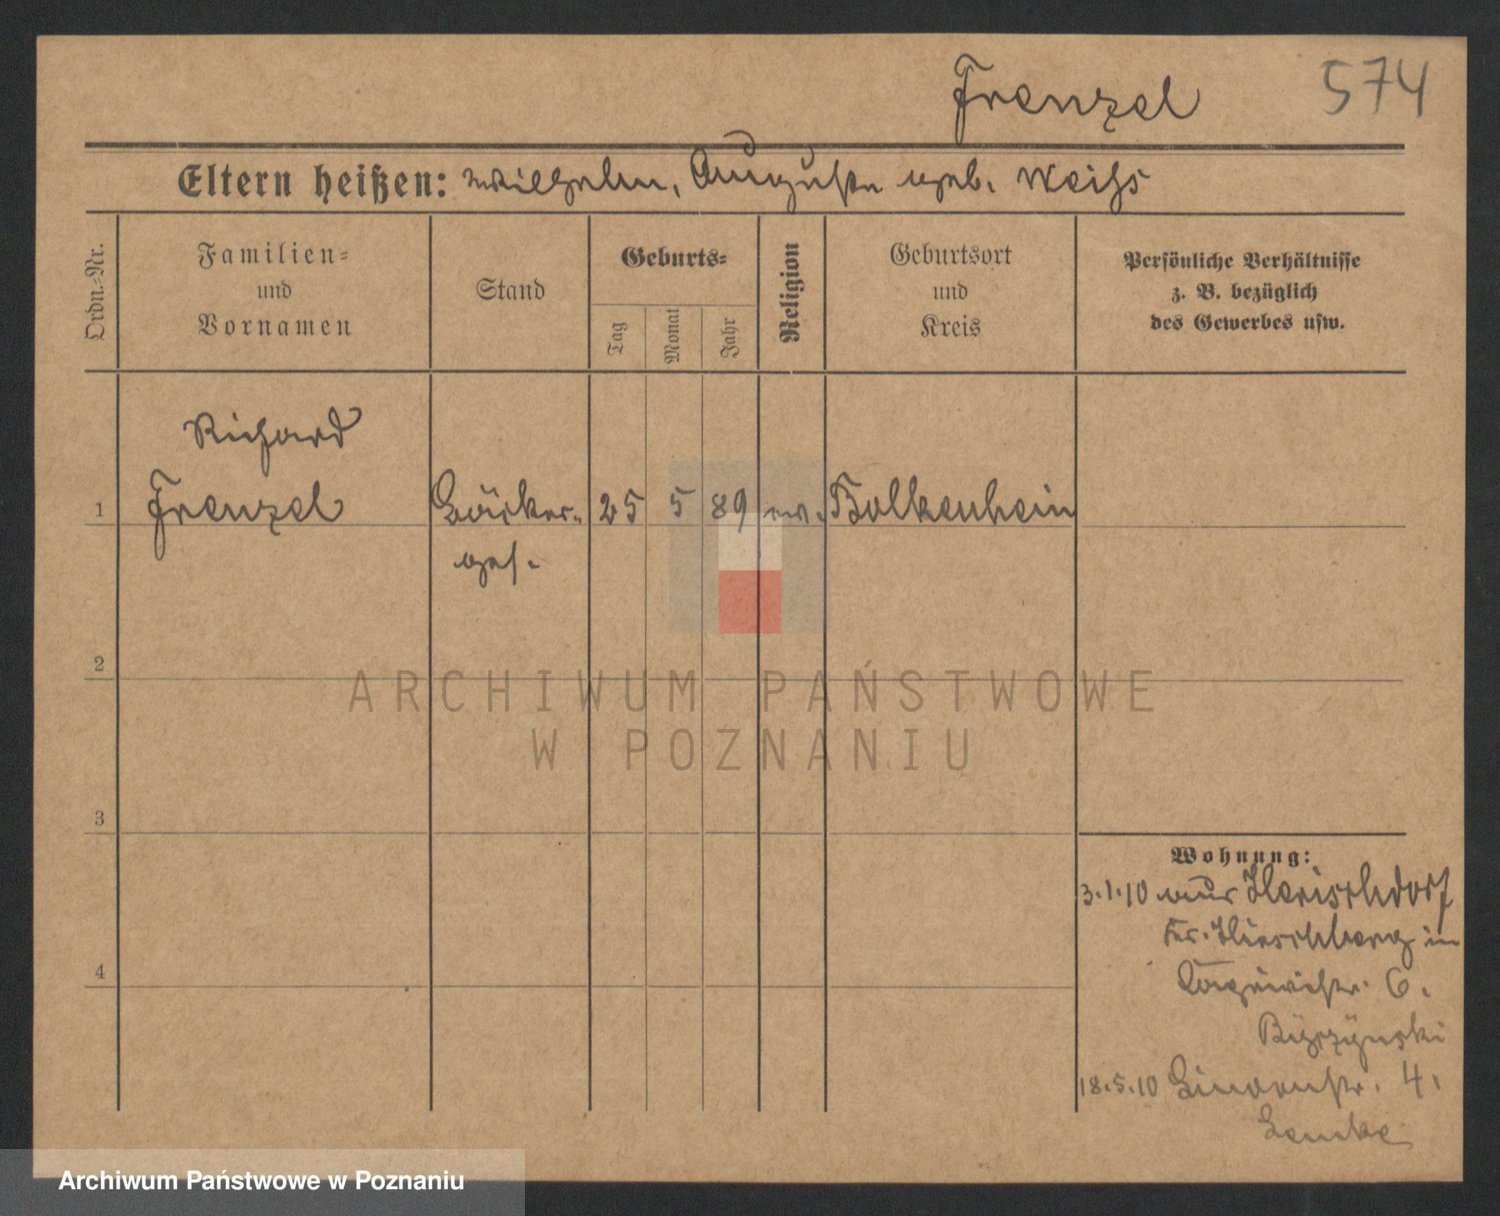 Frenzel 574
Eltern heißen: Wilhelm, Auguste geb. Weihs
Ordn.-Nr.
Familien-
und
Vornamen
Stand
Geburts-
Tag
Monat
Jahr
Religion
Geburtsort
und
Kreis
Persönliche Verhältnisse
z. B. bezüglich
des Gewerbes usw.
Richard
1 Frenzel Bäcker- 25 5 89 ev. Bolkenhein
ges.
2
ARCHIWUM PAŃSTWOWE
W POZNANIU
3
Wohnung:
3.1.10 aus Herischdorf
Kr. Hirschberg in
6.
4
18.5.10 Lindenstr. 4.
Lemke
Archiwum Państwowe w Poznaniu